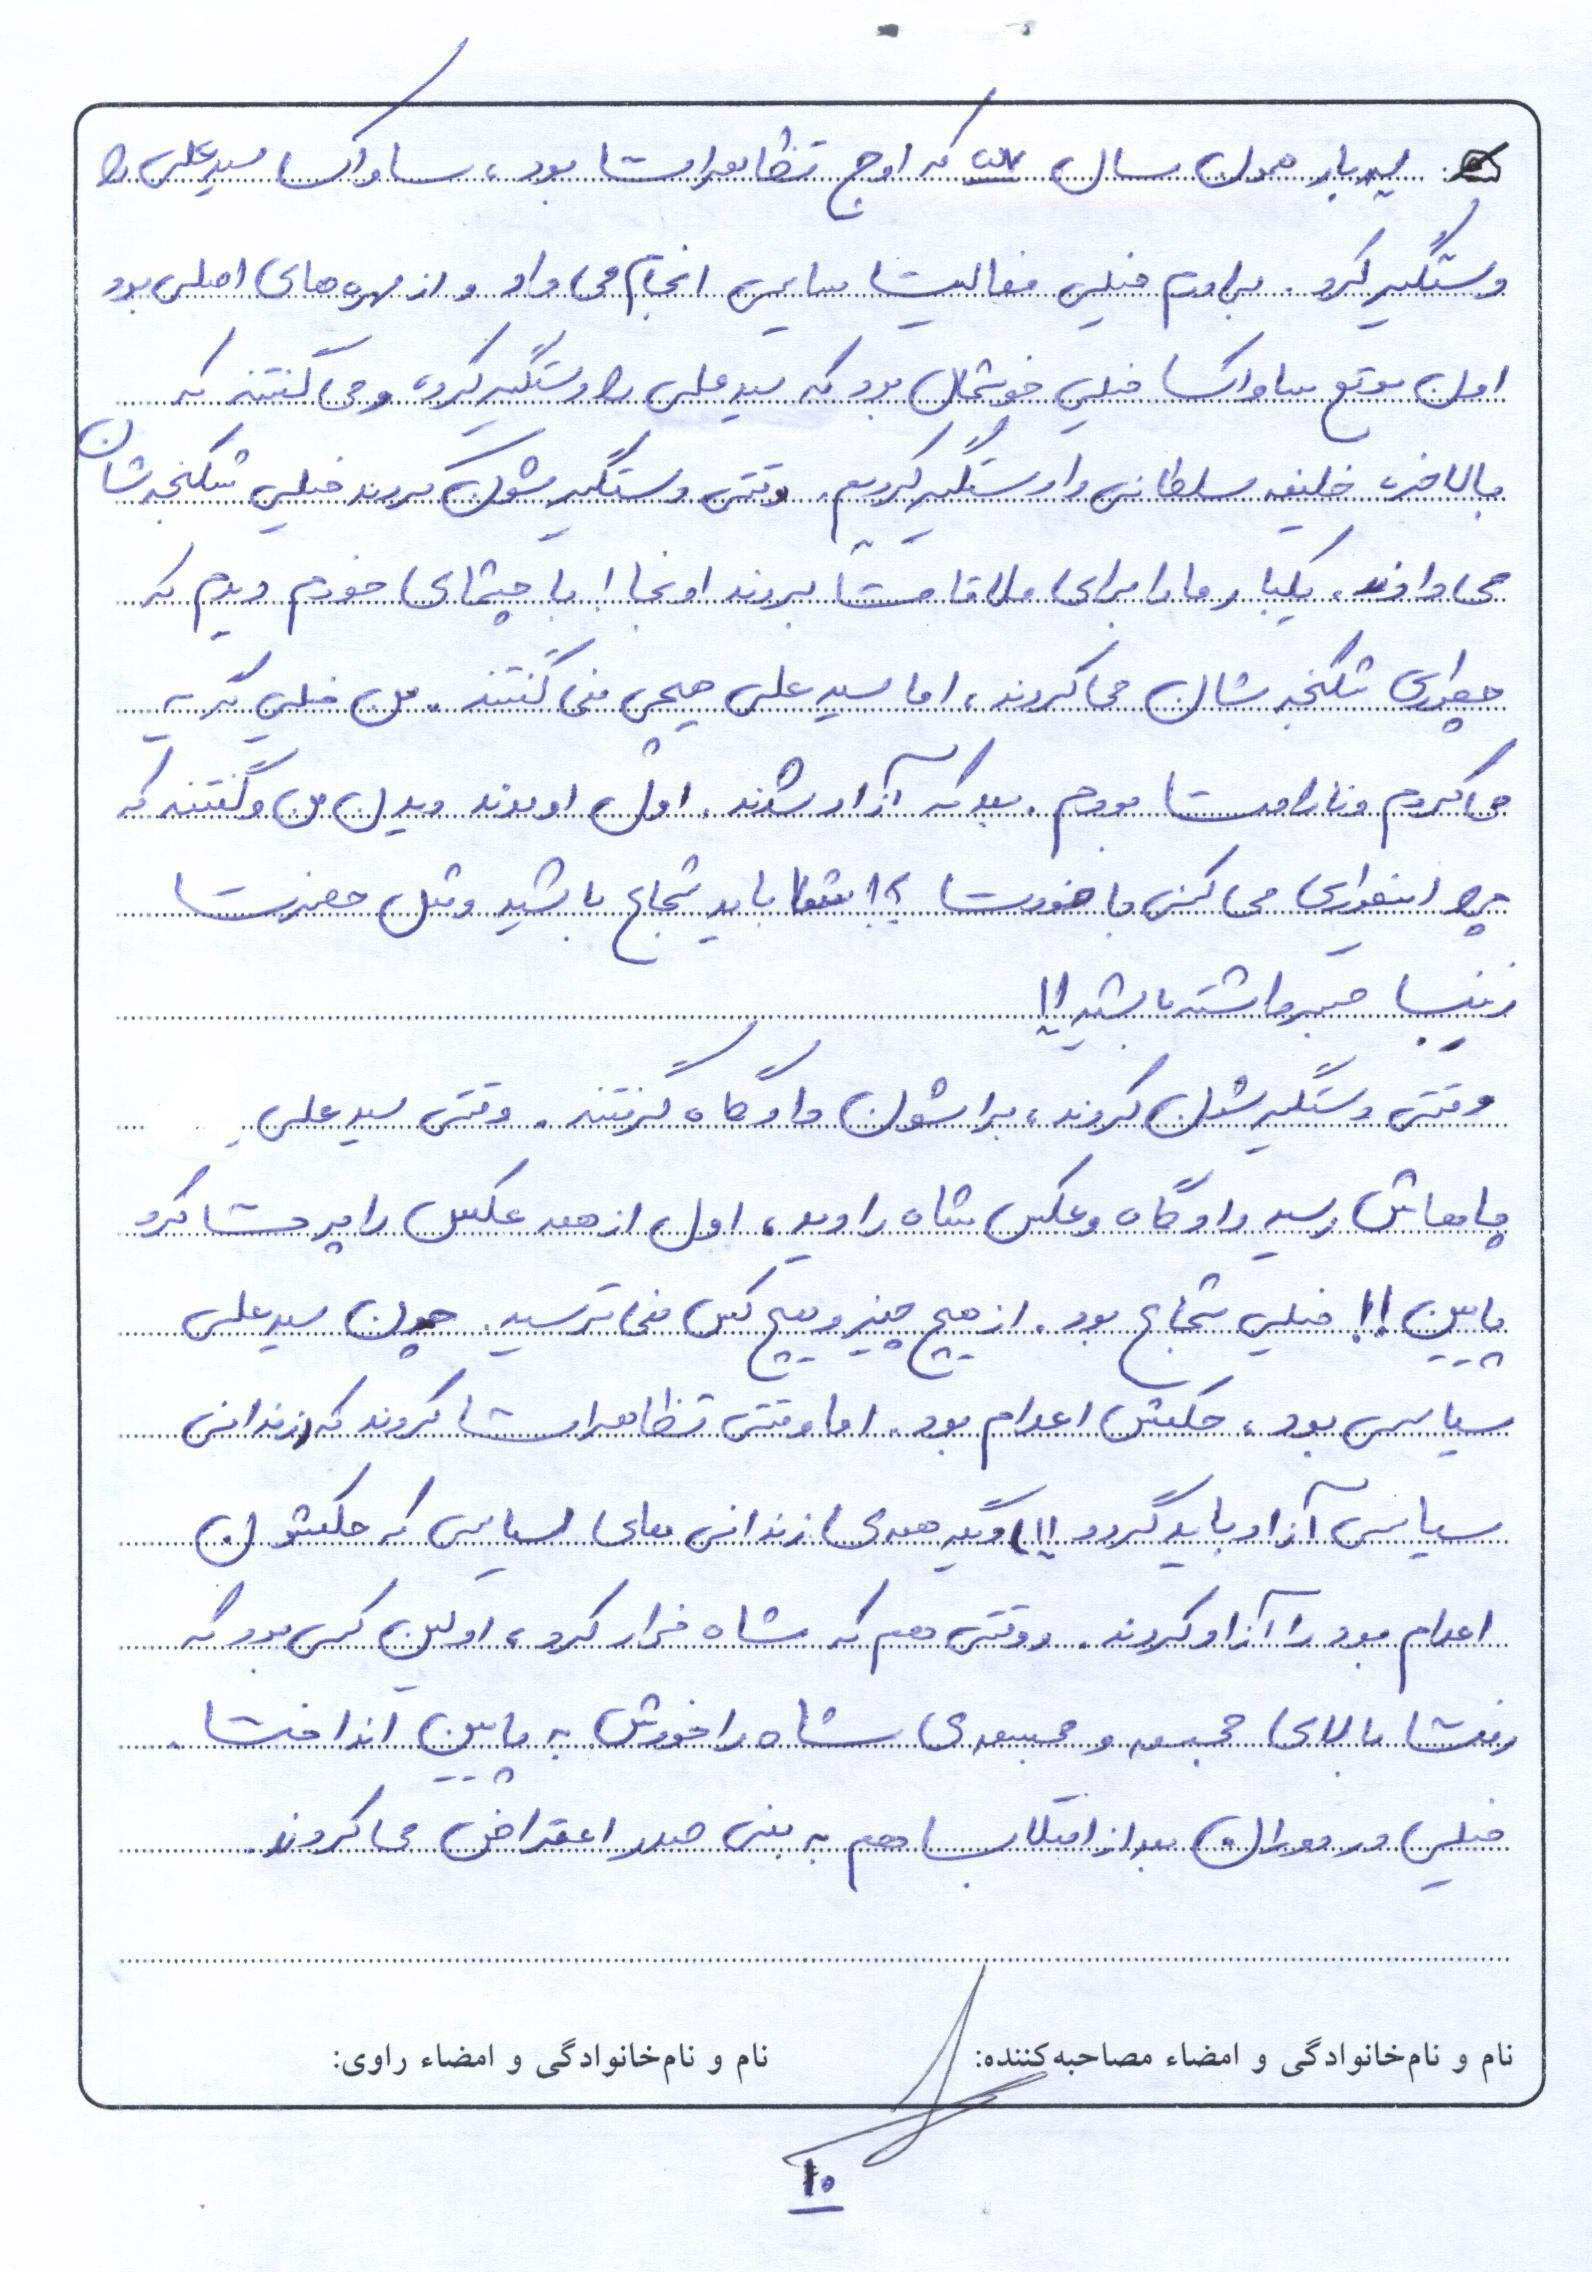 یه بار همون سال ۵۷ که اوج تظاهرات بود، ساواک سیدعلی را
دستگیر کرد. برادرم خیلی فعالیت سیاسی انجام می داد و از مهره های اصلی بود
اون موقع ساواک خیلی خوشحال بود که سیدعلی را دستگیر کرد، و می گفتند که
بالاخره خلیفه سلطانی را دستگیر کردیم. وقتی دستگیرشون کردند خیلی شکنجه شان
می دادند. یکبار ما را برای ملاقات بردند اونجا! با چشمای خودم دیدم که
چطوری شکنجه شان می کردند، اما سیدعلی هیچی نمی گفتند. من خیلی گریه
می کردم و ناراحت بودم. بعد که آزاد شدند. اول اومدند دیدن من و گفتند که
چرا اینطوری می کنی با خودت؟! شما باید شجاع باشید و مثل حضرت
زینب صبر داشته باشید!!
وقتی دستگیرشون کردند، براشون دادگاه گرفتند. وقتی سیدعلی
پاهاش رسید دادگاه و عکس شاه را دید، اول از همه عکس را پرت کرد
پایین!! خیلی شجاع بود. از هیچ چیز و هیچ کس نمی ترسید. چون سیدعلی
سیاسی بود، حکمش اعدام بود. اما وقتی تظاهرات کردند که (زندانی
سیاسی آزاد باید گردد!!) دیگه همه ی زندانی های سیاسی که حکمشون
اعدام بود را آزاد کردند. و وقتی هم که شاه فرار کرد، اولین کسی بود که
رفت بالای مجسمه و مجسمه ی شاه را خودش به پایین انداخت.
خیلی در دوران بعد از انقلاب هم به بنی صدر اعتراض می کردند.
نام و نام‌خانوادگی و امضاء مصاحبه‌کننده: نام و نام‌خانوادگی و امضاء راوی:
۱۰